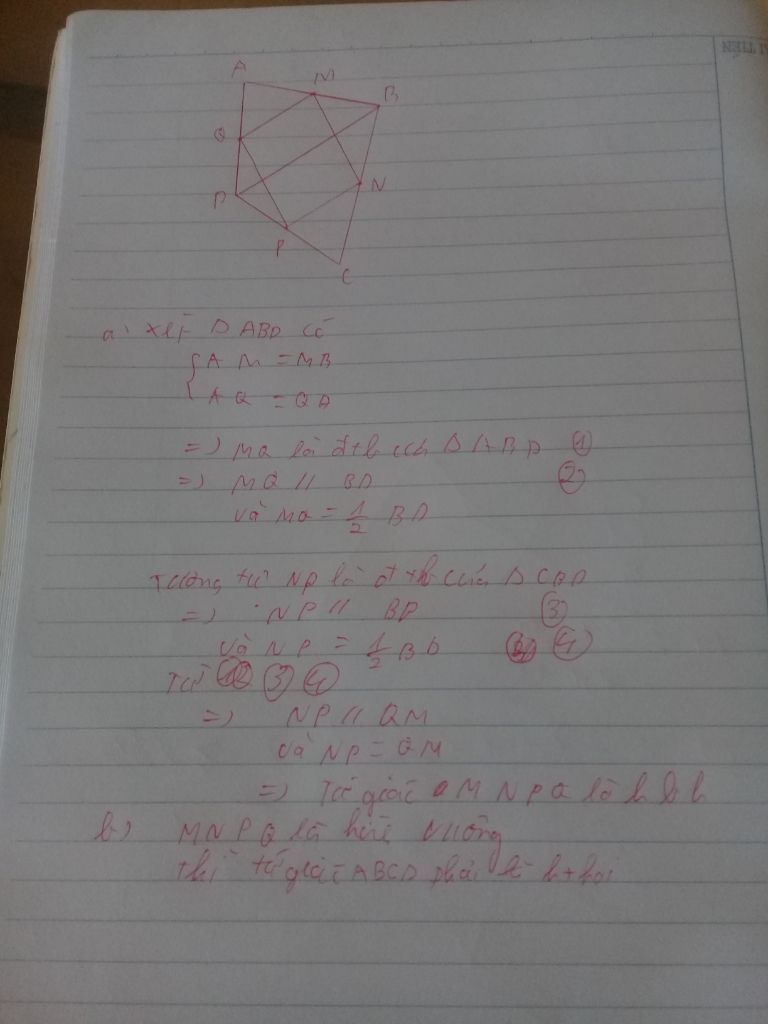 A M B
Q
D N
P
C
a, xét Δ ABD có
A M = MB
A Q = QD
=) MQ là đtb của Δ ABD ①
=) MQ // BD ②
và MQ = 1/2 BD
Tương tự NP là đtb của Δ CBD
=) NP // BD ③
và NP = 1/2 BD ④
Từ ①② ③ ④
=) NP // QM
và NP = QM
=) Tứ giác MNPQ là h b h
b) MNPQ là hình vuông
thì tứ giác ABCD phải là h thoi